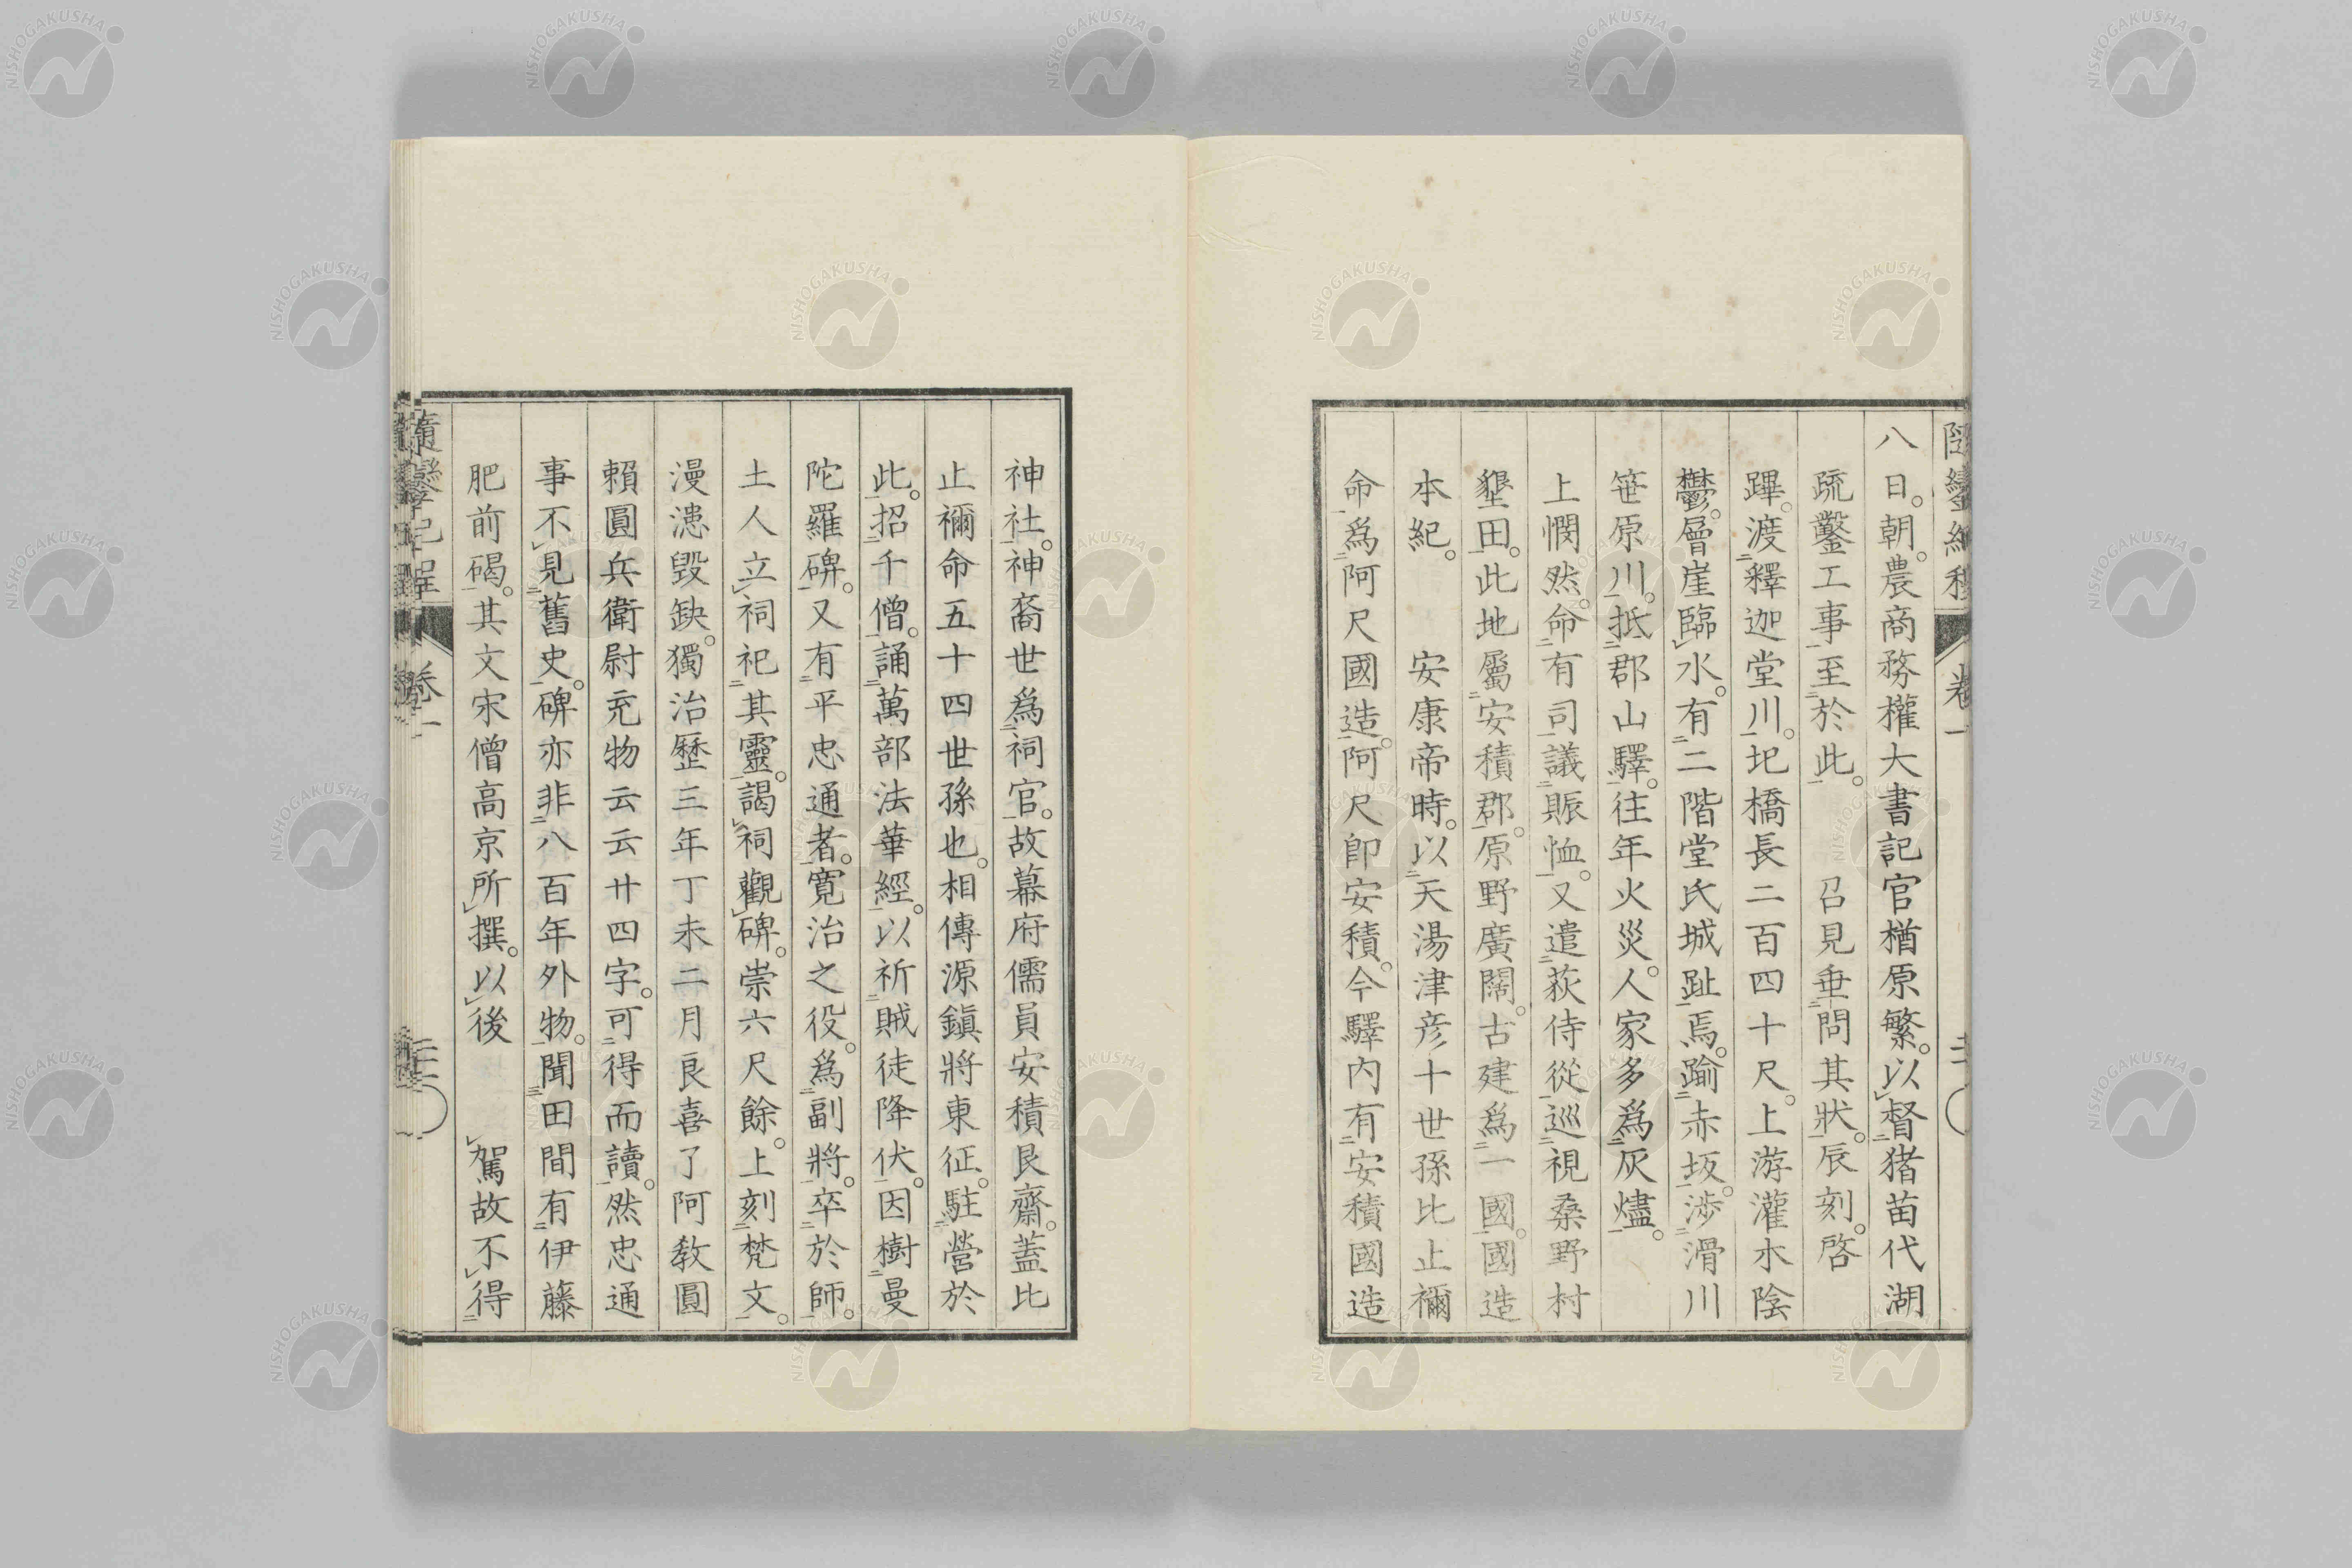 八日。朝。農商務權大書記官楢原繁。以督猪苗代湖
疏鑿工事至於此。　召見垂問其狀。辰刻。啓
蹕。渡釋迦堂川。圯橋長二百四十尺。上游灌木陰
鬱。層崖臨水。有二階堂氏城趾焉。踰赤坂。涉滑川
笹原川。抵郡山驛。往年火災。人家多爲灰燼。
上憫然。命有司議賑恤。又遣荻侍從巡視桑野村
墾田。此地屬安積郡。原野廣闊。古建爲一國。國造
本紀。　安康帝時。以天湯津彦十世孫比止禰
命爲阿尺國造。阿尺卽安積。今驛内有安積國造
神社。神裔世爲祠官。故幕府儒員安積艮齋。蓋比
止禰命五十四世孫也。相傳源鎭將東征。駐營於
此。招千僧。誦萬部法華經。以祈賊徒降伏。因樹曼
陀羅碑。又有平忠通者。寛治之役。爲副將。卒於師。
土人立祠祀其靈。謁祠觀碑。崇六尺餘。上刻梵文。
漫漶毀缺。獨治歷三年丁未二月良喜了阿教圓
賴圓兵衛尉充物云云廿四字。可得而讀。然忠通
事不見舊史。碑亦非八百年外物。聞田間有伊藤
肥前碣。其文宋僧高京所撰。以後　駕故不得
卷一
NISHOGAKUSHA